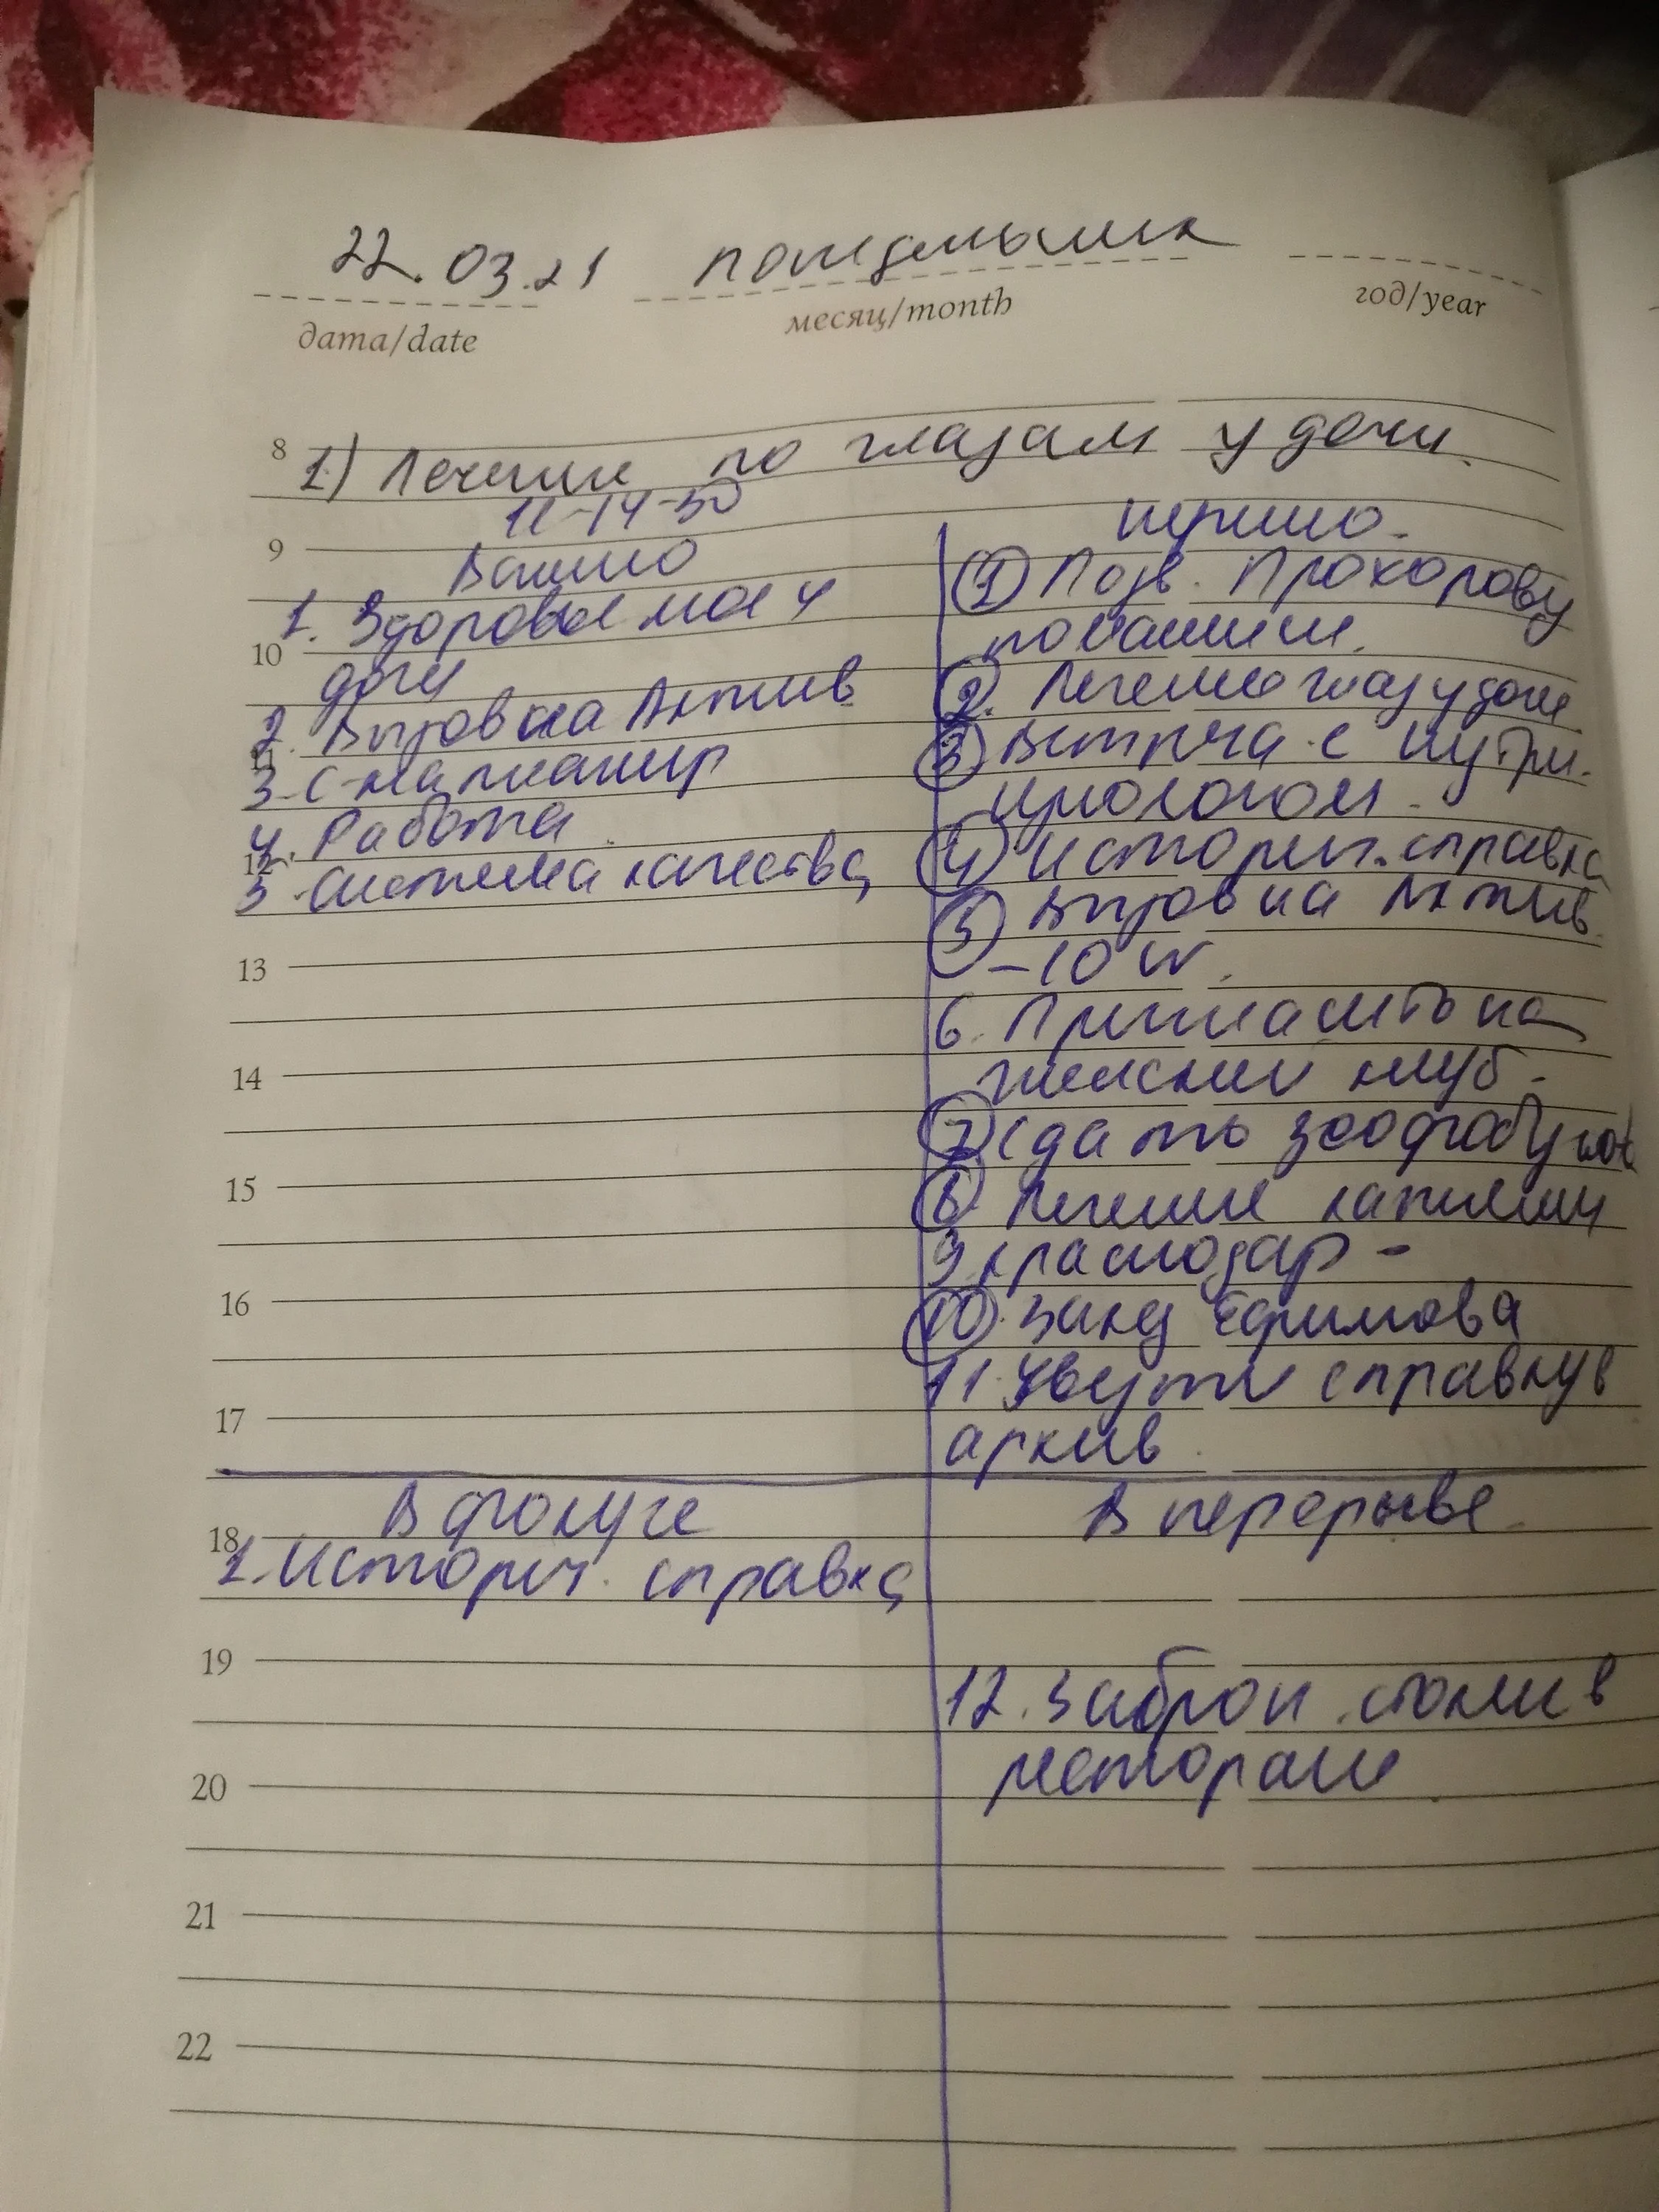 22.03.21 понедельник
дата/date месяц/month год/year
8 1) Лечение по глазам у дочи.
11-14-30
9
Важно
1. Здоровье мое и
10
дочи
2. Выйров на Актив
11
3.
4. Работа.
12
5. Система качества
13
14
15
16
17
срочно.
1 Позв. Прохорову
по вакцине.
2. Лечение глаз у дочи
3 Встреча с нутри-
циологом.
4 Историч. справка
5 на Актив
-10
6. Пригласить на
женский клуб.
7 Сдать
8 Лечение
9 Краснодар -
10. Ефимова
11. Увезти справку в
архив.
18
В фокусе
1. Историч. справка
19
20
21
22
В перерыве
12. Заброн. столик в
ресторане.